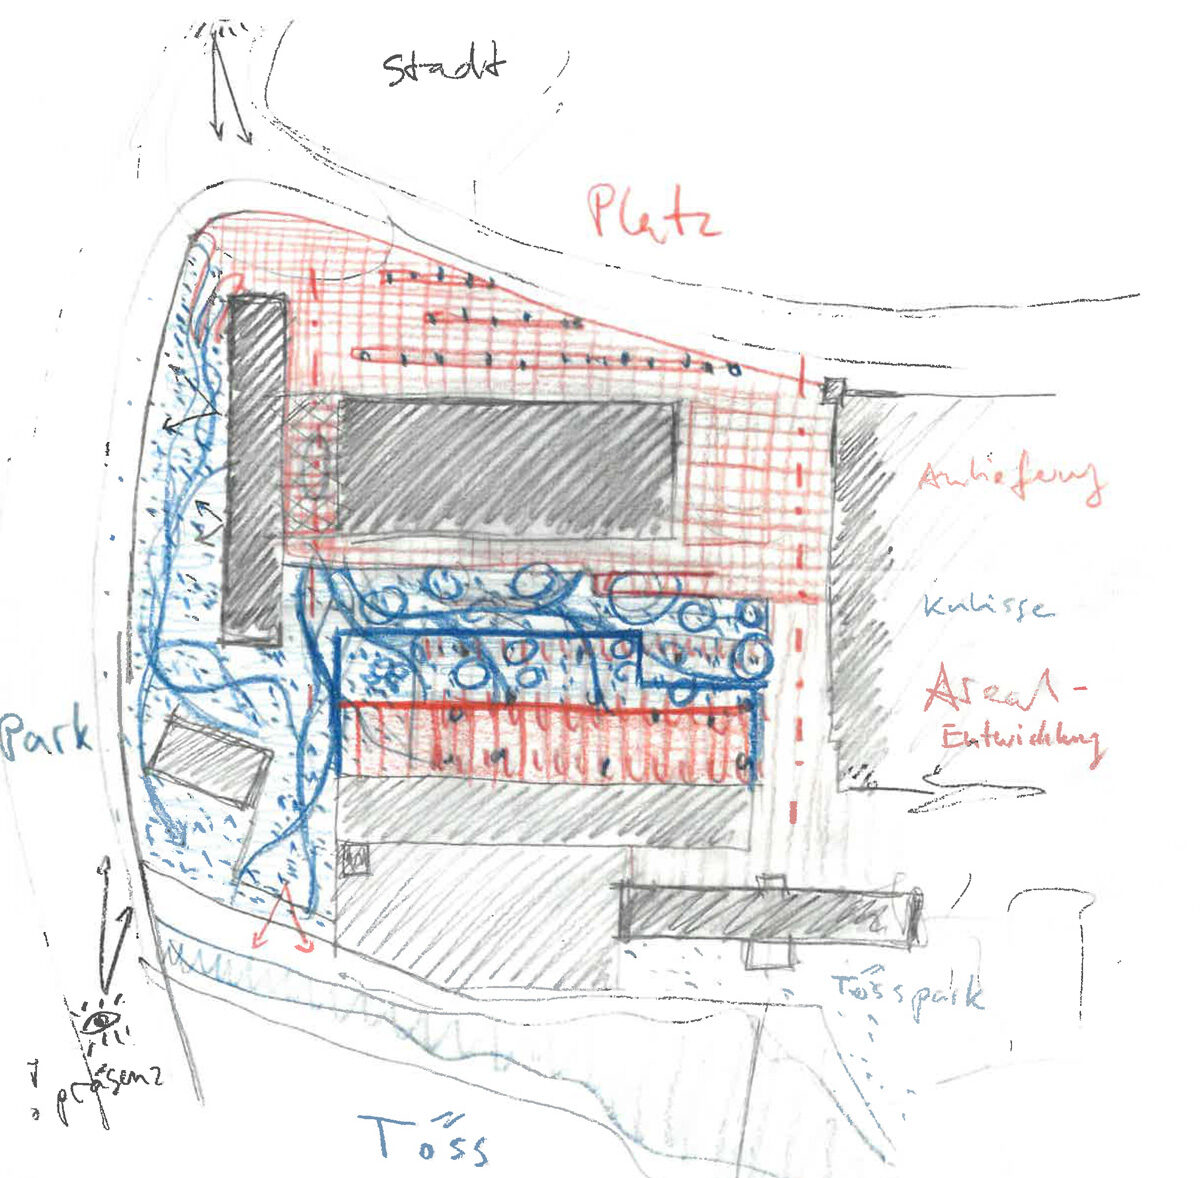 Stadt
Platz
Anlieferung
Kulisse
Areal-
Entwicklung
Park
Tösspark
präsenz
Töss